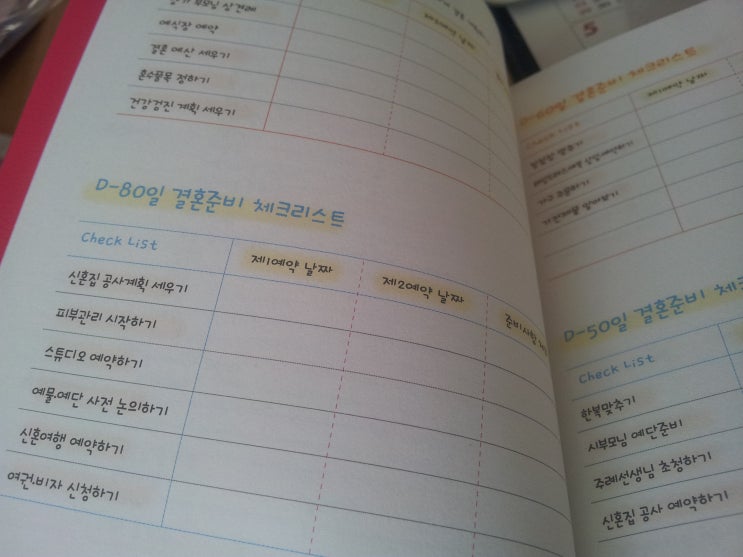 부모님 상견례
예식장 예약
결혼 예산 세우기
혼수품목 정하기
건강검진 계획 세우기
D-80일 결혼준비 체크리스트
Check List
제1예약 날짜
제2예약 날짜
준비사항
신혼집 공사계획 세우기
피부관리 시작하기
스튜디오 예약하기
예물.예단 사전 논의하기
신혼여행 예약하기
여권.비자 신청하기
5
D-60일 결혼준비 체크리스트
Check List
제1예약 날짜
가구 주문하기
가전제품 알아보기
D-50일 결혼준비 체크
Check List
한복맞추기
시부모님 예단준비
주례선생님 초청하기
신혼집 공사 예약하기